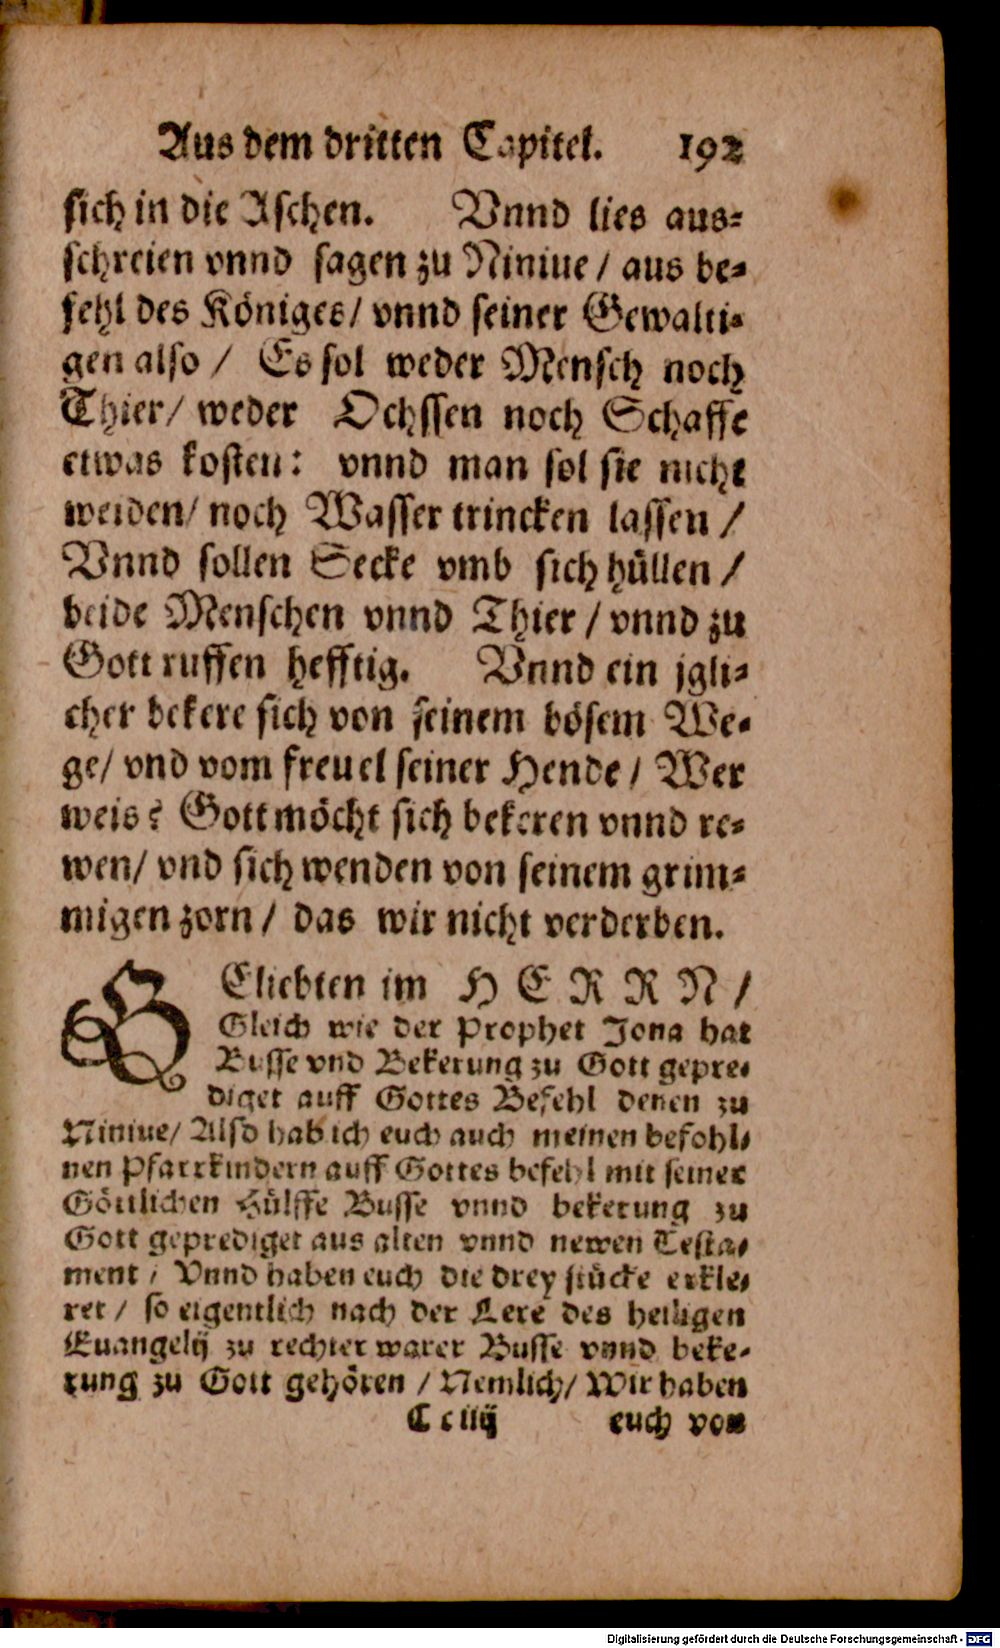 Aus dem dritten Capitel. 192
sich in die Aschen. Vnnd lies aus⸗
schreien vnnd sagen zu Niniue / aus be⸗
fehl des Königes / vnnd seiner Gewalti⸗
gen also / Es sol weder Mensch noch
Thier / weder Ochssen noch Schaffe
etwas kosten: vnnd man sol sie nicht
weiden / noch Wasser trincken lassen /
Vnnd sollen Secke vmb sich hüllen /
beide Menschen vnnd Thier / vnnd zu
Gott ruffen hefftig. Vnnd ein jgli⸗
cher bekere sich von seinem bösem We⸗
ge / vnd vom freuel seiner Hende / Wer
weis? Gott möcht sich bekeren vnnd re⸗
wen / vnd sich wenden von seinem grim⸗
migen zorn / das wir nicht verderben.
GEliebten im HERRN /
Gleich wie der Prophet Jona hat
Busse vnd Bekerung zu Gott gepre⸗
diget auff Gottes Befehl denen zu
Niniue / Also hab ich euch auch meinen befohl⸗
nen Pfarrkindern auff Gottes befehl mit seiner
Göttlichen Hülffe Busse vnnd bekerung zu
Gott geprediget aus alten vnnd newen Testa⸗
ment / Vnnd haben euch die drey stücke erkle⸗
ret / so eigentlich nach der Lere des heiligen
Euangelij zu rechter warer Busse vnnd beke⸗
rung zu Gott gehören / Nemlich / Wir haben
C c iiij euch von
Digitalisierung gefördert durch die Deutsche Forschungsgemeinschaft - DFG